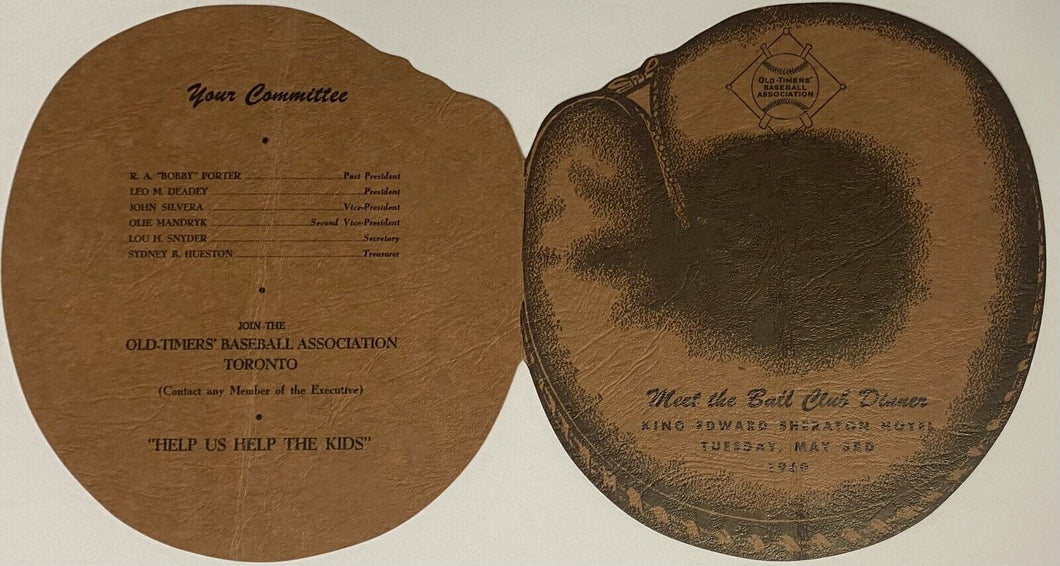 Your Committee
R. A. "BOBBY" PORTER Past President
LEO M. DEADEY President
JOHN SILVERA Vice-President
OLIE MANDRYK Second Vice-President
LOU H. SNYDER Secretary
SYDNEY B. HUESTON Treasurer
JOIN THE
OLD-TIMERS' BASEBALL ASSOCIATION
TORONTO
(Contact any Member of the Executive)
"HELP US HELP THE KIDS"
OLD-TIMERS'
BASEBALL
ASSOCIATION
Meet the Ball Club Dinner
KING EDWARD SHERATON HOTEL
TUESDAY, MAY 3RD
1960